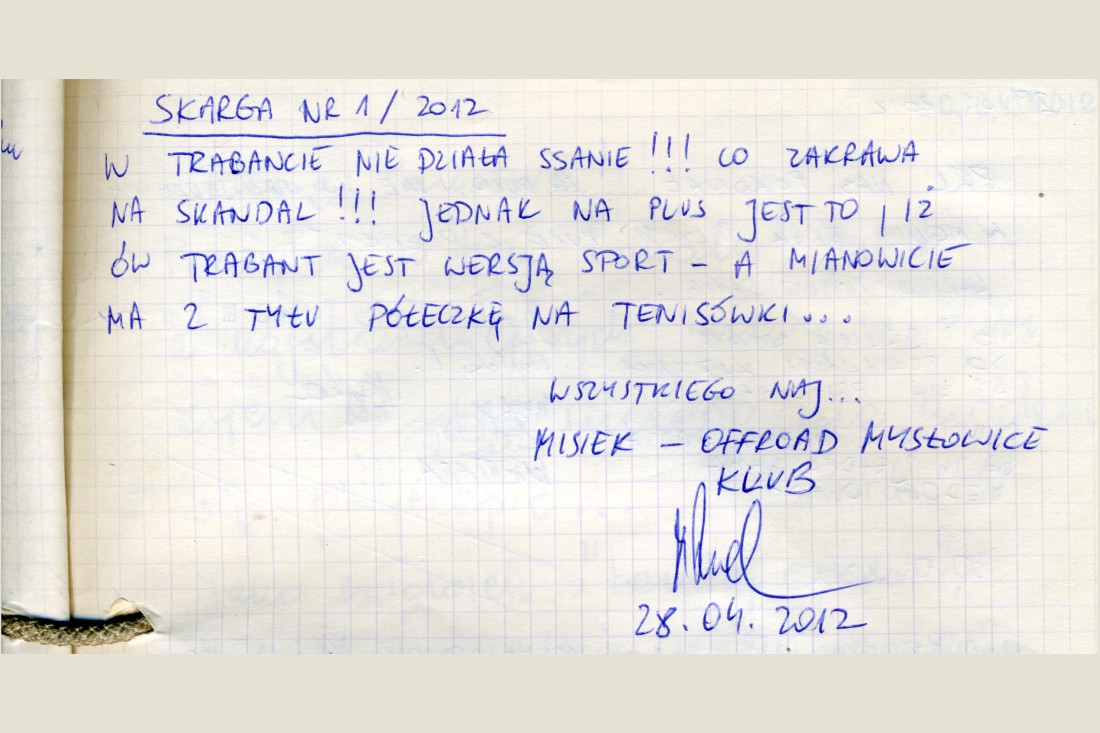 SKARGA NR 1/2012
W TRABANCIE NIE DZIAŁA SSANIE!!! CO ZAKRAWA
NA SKANDAL!!! JEDNAK NA PLUS JEST TO, IŻ
ÓW TRABANT JEST WERSJĄ SPORT – A MIANOWICIE
MA Z TYŁU PÓŁECZKĘ NA TENISÓWKI...
WSZYSTKIEGO NAJ...
MISIEK – OFFROAD MYSŁOWICE
KLUB
28.04.2012